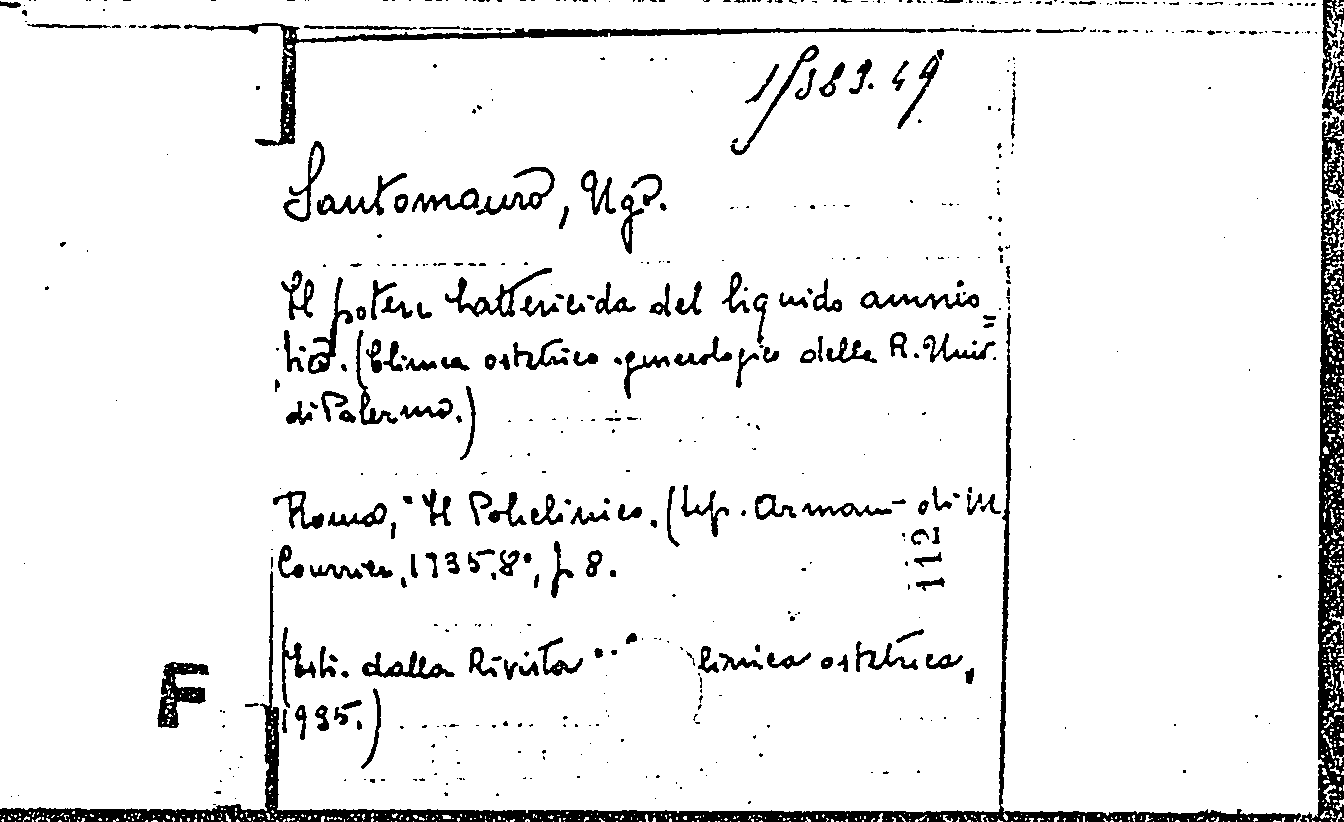 1/383.49
Santomauro, Ugo.
Il potere battericida del liquido amnio=
tico. (Clinica ostetrico ginecologico della R. Univ.
di Palermo.)
Roma, Il Policlinico. (tip. Armani di M.
Courrier, 1935. 8°, p. 8.
112
(Estr. dalla Rivista linica ostetrica,
1935.)
F